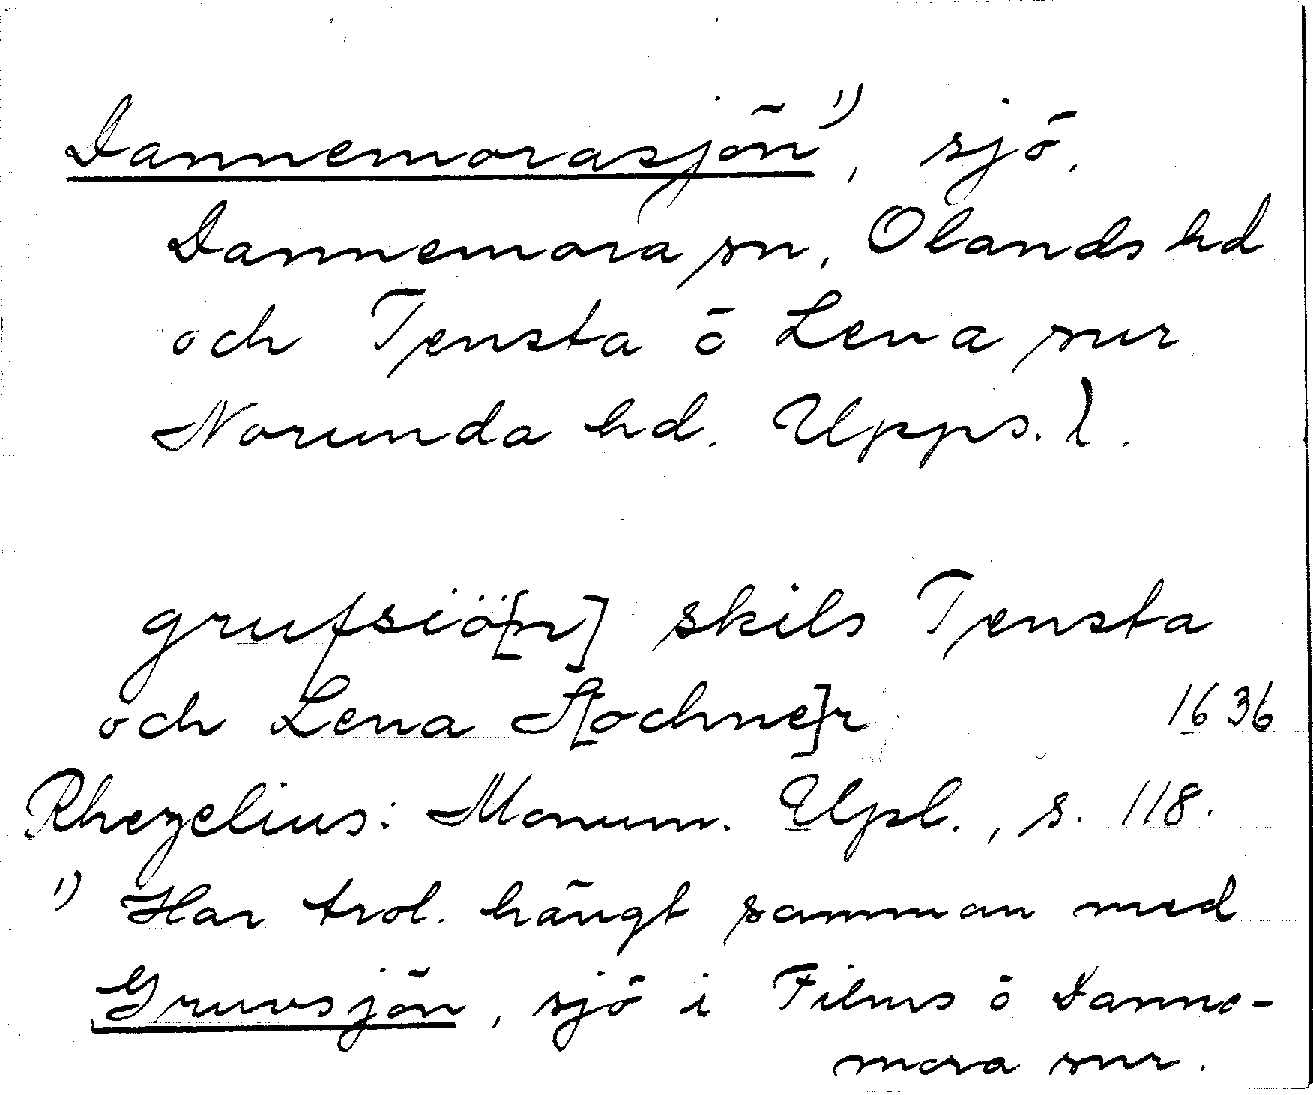 Dannemorasjön¹⁾, sjö,
Dannemora sn, Olands hd
och Tensta o Lena snr
Norunda hd. Upps. l.
grufsiö[n] skils Tensta
och Lena S[ochne]r 1636
Rhezelius: Monum. Upl., s. 118.
¹⁾ Har trol. hängt samman med
Gruvsjön, sjö i Films o Danne-
mora snr.